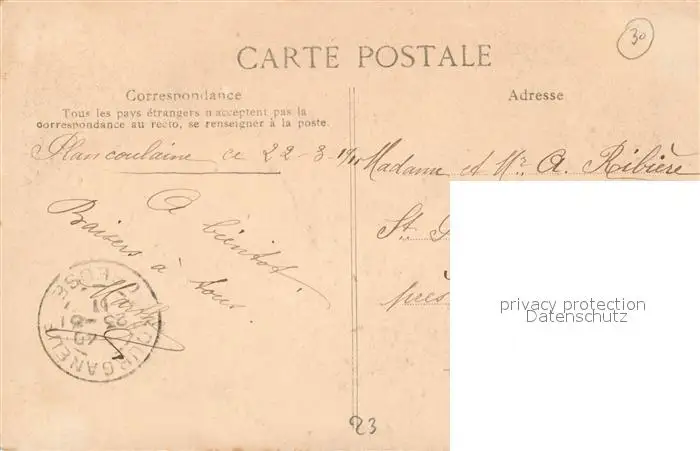 30
CARTE POSTALE
Correspondance
Tous les pays étrangers n'acceptent pas la
correspondance au recto, se renseigner à la poste.
Adresse
Plancoulaine ce 22-3-1911
A bientôt.
Baisers à tous.
Madame et Mr. A. Ribière
St.
près
BOURGANEUF
CREUSE
23
privacy protection
Datenschutz